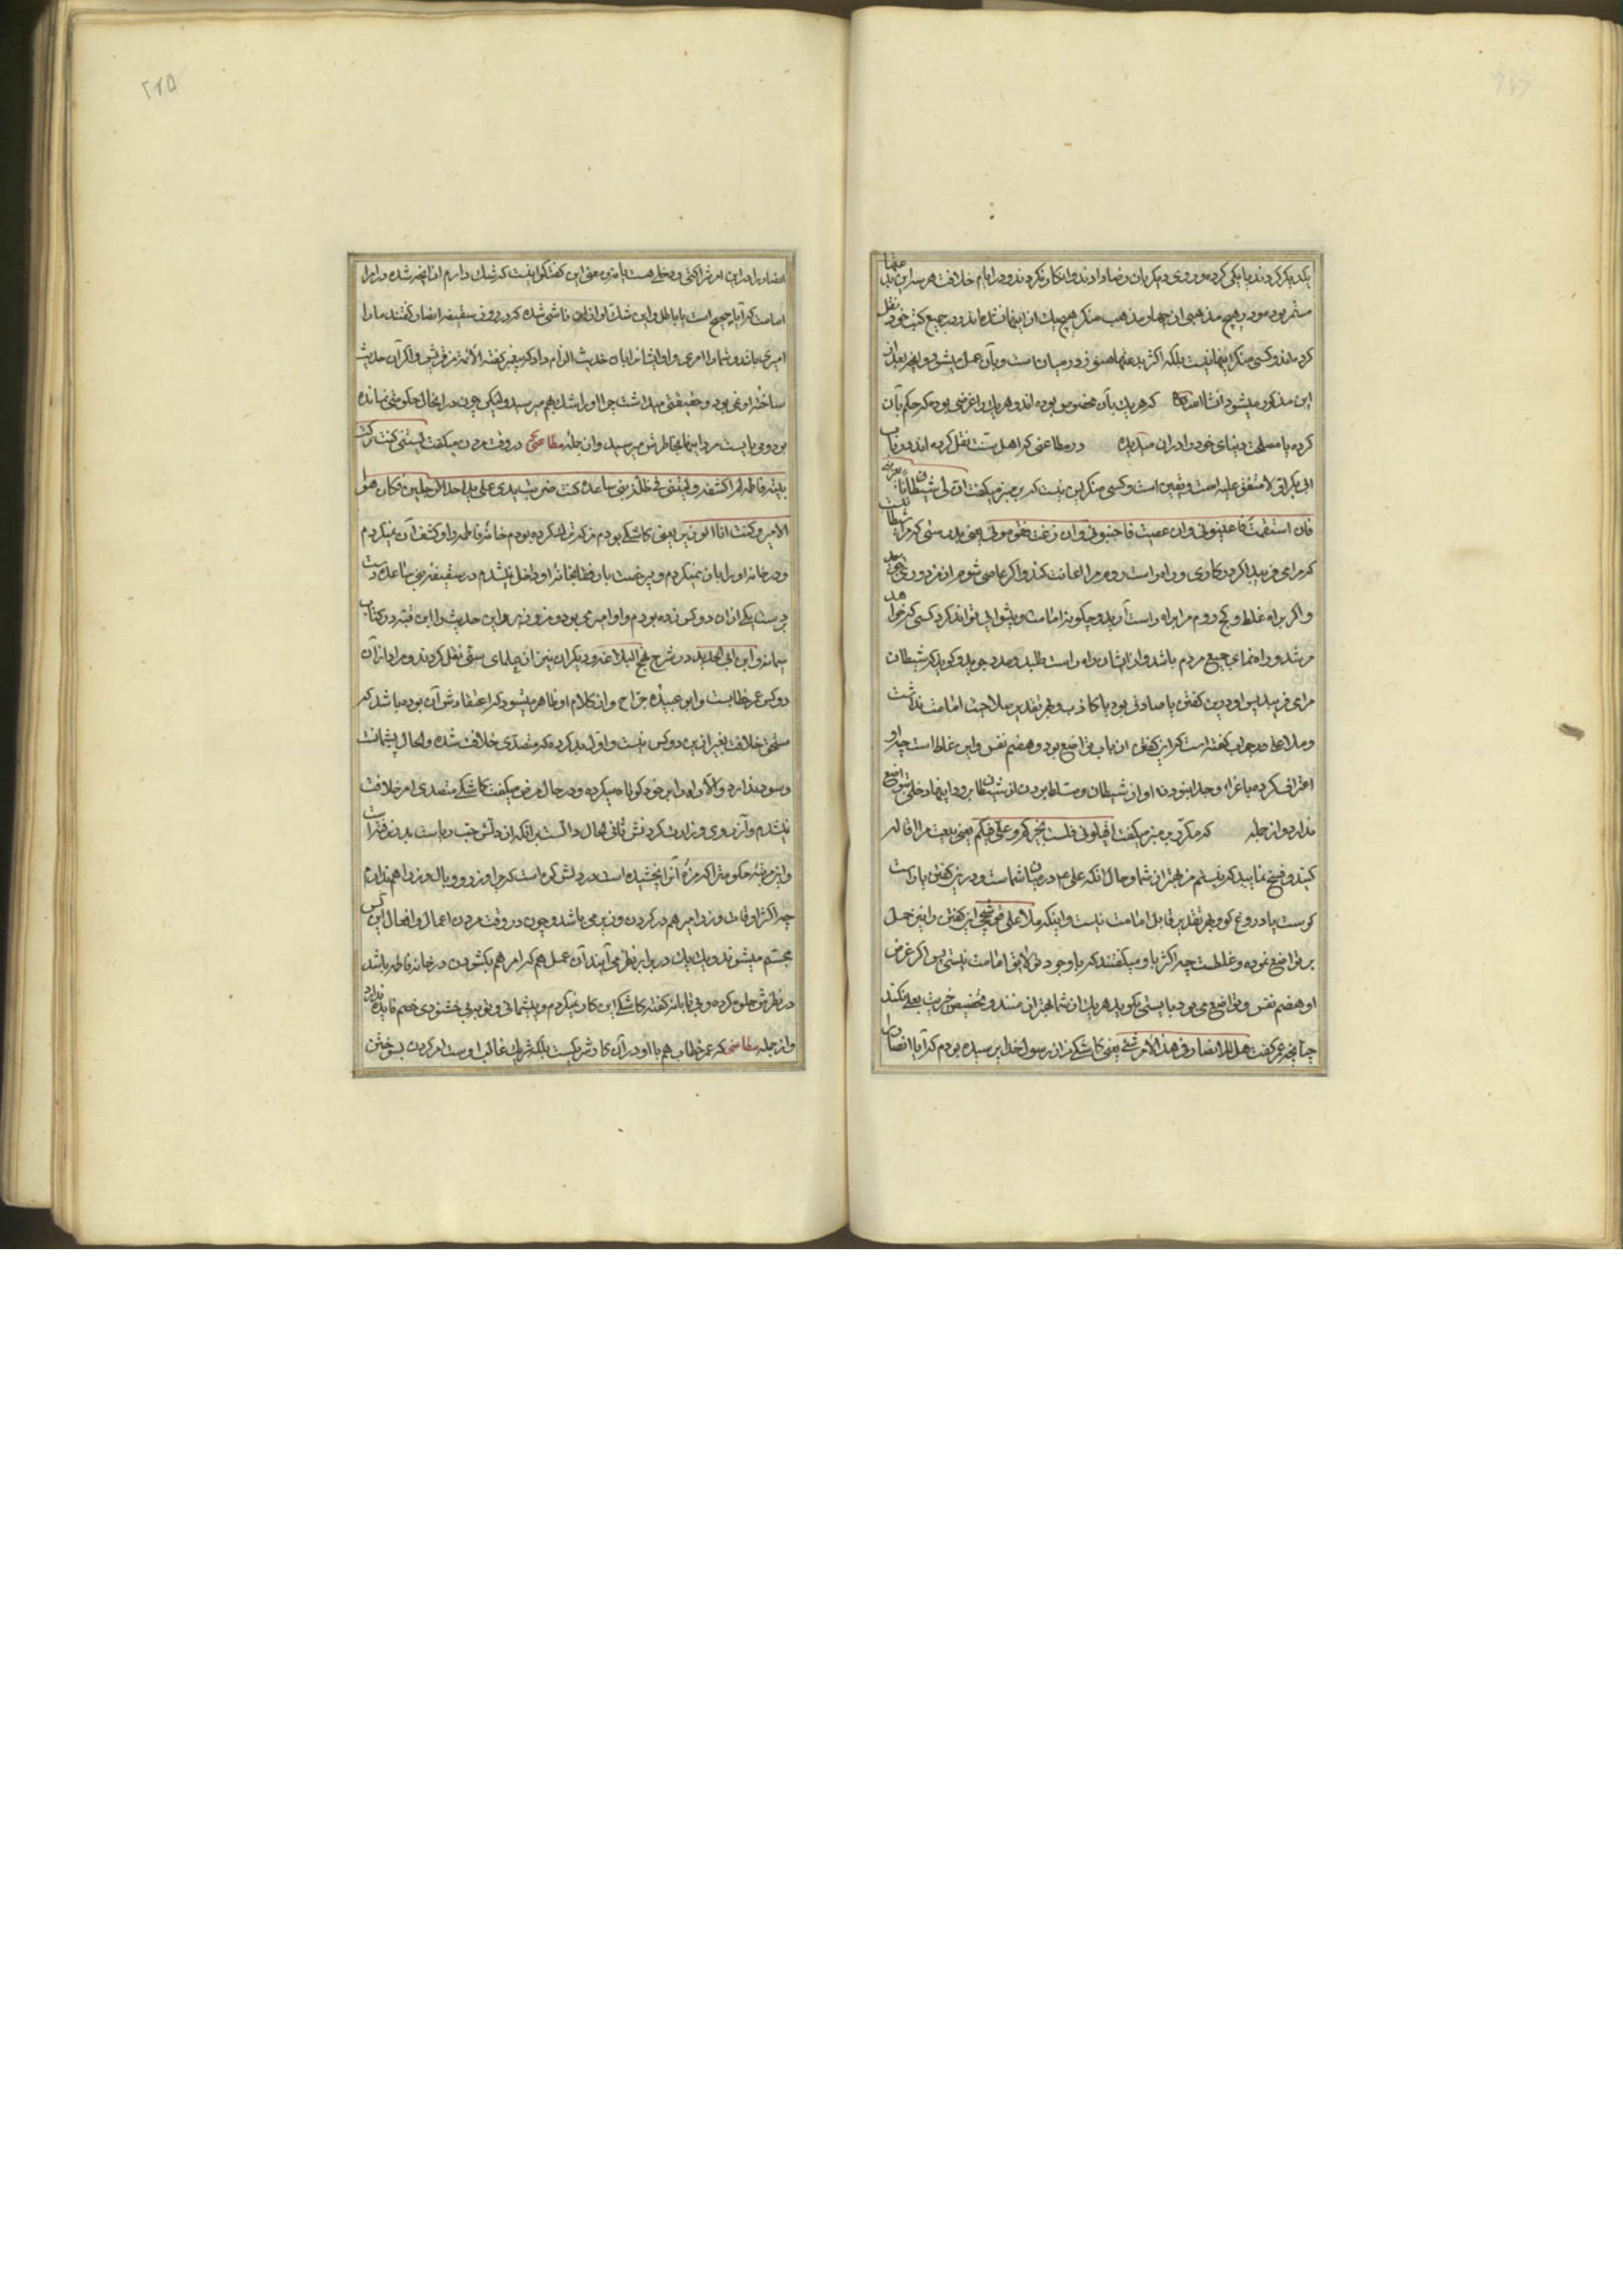 یکدیکر کردند یا یکی کرده و روی دیکر بآن رضا دادند و انکار نکردند و در ایام خلافت هر سه این بدعتها
مستمر بود و در هیچ مذهبی از چهار مذهب منکر هیچ یك از اینها نشده اند و در جمیع کتب خود نقل
کرده اند و کسی منکر اینها نیست بلکه اکثر بدعتها هنوز در میان است و بآن عمل میشود و آنچه بعد از
این مذکور میشود انشاالله که هر یك بآن مخصوص بوده اند و هر یك را غرضی بوده که حکم بآن
کرده یا مصلحت دنیای خود را در آن میدیده در مطاعنی که اهل سنت نقل کرده اند در باب
ابی بکر اول متفق علیه است و یقین است و کسی منکر این نیست که بر منبر میکفت ان لی شیطانا یعترینی
فان استقمت فاعینونی و ان عصیت فاجنبونی و ان زغت فقومونی یعنی بدرستی که مرا شیطانیست
که مرا می فریبد اکر در کاری و راه راست روم مرا اعانت کنید و اکر عاصی شوم از من دوری
و اکر براه غلط و کج روم مرا براه راست آرید و چکونه امامت و پیشوایی تواند کرد کسی که خواهد
مرشد و راه نمای جمیع مردم باشد و از ایشان راه راست طلبد و مدد جوید و کوید که شیطان
مرا می فریبد پس او در این کفتن یا صادق بود یا کاذب و بهر تقدیر صلاحیت امامت نداشت
و ملا علی در جواب کفته است که این کفتن از باب تواضع بود و هضم نفس و این غلط است چه او
اعتراف کرده باغرا و جدا نبودن او از شیطان و مسلط بودن شیطان برو و اینها دخلی بتواضع
ندارد و از جمله که مکرر بر منبر میکفت اقیلونی فلست بخیرکم و علی فیکم یعنی بیعت مرا اقاله
کنید و فسخ نمایید که نیستم من بهتر از شما و حال آنکه علی ع در میان شماست و در این کفتن یا راست
کوست یا دروغ کو و بهر تقدیر قابل امامت نیست و اینکه ملا علی قوشچی این کفتن را نیز حمل
بر تواضع نموده و غلطست چه اکثر باو میکفتند که با وجود تو لایق امامت نیستی پس اکر غرض
او هضم نفس و تواضع می بود بایستی بکوید هر یك از شما بهتر از منند و تخصیص خیریت بعلی نکند
چنانچه عمر کفت هل للانصار فی هذا الامر شئ یعنی کاشکی من از رسول خدا پرسیده بودم که آیا انصار
انصار را در این امر شراکتی و دخلی هست یا نه و معنی این کفتکو اینست که شك دارم از آنچه شده در امر
امامت که آیا صحیح است یا باطل و این شك او از آن ناشی شده که در روز سقیفه انصار کفتند ما را
امیری باشد و شما را امیری و او ایشانرا بآن حدیث الزام داد که پیغمبر کفته الائمة من قریش و اکر آن حدیث
ساخته او نمی بود و حقیقتی میداشت چرا او را شك بهم میرسید ولیکن چون در آنحال حکومتی نمانده
بود و می بایست مرد اینها بخاطرش میرسید و از جمله مطاعنش در وقت مردن میکفت لیتنی کنت ترکت
بیت فاطمه لم اکشفه و لیتنی فی ظلة بنی ساعده کنت ضربت یدی علی ید احد الرجلین فکان هو
الامیر و کنت انا الوزیر یعنی کاشکی بودم من که ترك کرده بودم خانه فاطمه را و کشف آن نمیکردم
و در خانه او را باز نمیکردم و بی رخصت بار فقا بخانه او داخل نمیشدم در سقیفه بنی ساعده دست
بر دست یکی از آن دو کس زده بودم و او امیر می بود و من وزیر و این حدیث را ابن قتیبه در کتاب
سیاسة و ابن ابی الحدید در شرح نهج البلاغه و دیکران نیز از علمای سنی نقل کردند و مراد از آن
دو کس عمر خطابست و ابو عبیده جراح و از کلام او ظاهر میشود که اعتقادش آن بوده باشد که
مستحق خلافت بغیر از این دو کس نیست و او بد کرده که متصدی خلافت شده و الحال پشیمانست
و سود ندارد و الا در حال مرض میکفت کاشکی متصدی امر خلافت
نمیشدم و آرزوی وزارت کردنش
چه اکثر اوقات وزیر امیر هم در کردن وزیر می باشد و چون در وقت مردن اعمال و افعال این کس
مجسم میشوند و یك یك در برابر نظر می آیند آن عمل هم که امر هم بکشودن در خانه فاطمه باشد
در نظرش جلوه کرده و بی تابانه کفته کاشکی این کار نمیکردم و پشیمانی و توبه بی خشنودی خصم فایده ندارد
و از جمله مطاعنی که عمر خطاب هم با او در آن کار شریکست بلکه شریك غالب اوست امر کردن بسوختن